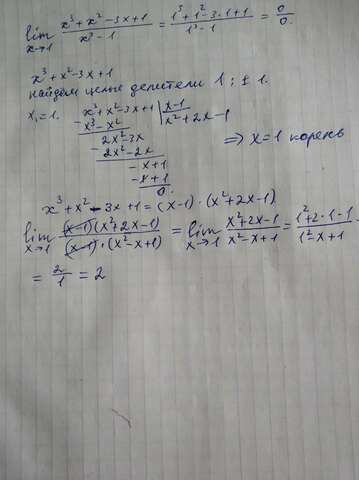 lim x→1 (x³ + x² - 3x + 1)/(x³ - 1) = (1³ + 1² - 3·1 + 1)/(1³ - 1) = 0/0.
x³ + x² - 3x + 1
найдем целые делители 1: ± 1.
x₁ = 1. x³ + x² - 3x + 1 | x - 1
- x³ - x² | x² + 2x - 1
2x² - 3x
- 2x² - 2x ⇒ x = 1 корень
- x + 1
- - x + 1
0.
x³ + x² - 3x + 1 = (x-1) · (x² + 2x - 1)
lim x→1 (x-1)(x² + 2x - 1)/(x-1)·(x² - x + 1) = lim x→1 (x² + 2x - 1)/(x² - x + 1) = (1² + 2·1 - 1)/(1² - x + 1)
= 2/1 = 2